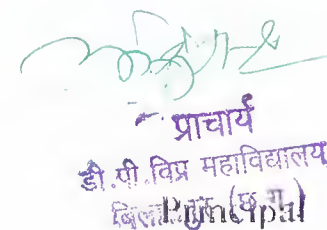 प्राचार्य
डी.पी.विप्र महाविद्यालय
(छ.ग.)
Principal